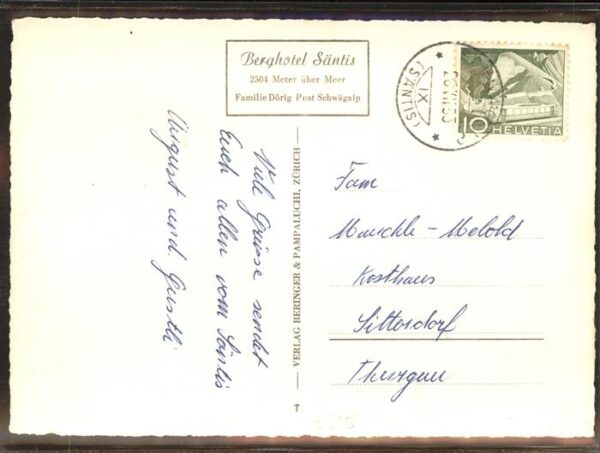 Berghotel Säntis
2504 Meter über Meer
Familie Dörig Post Schwägalp
(SÄNTIS)
IX
10 HELVETIA
Viele Grüsse sendet
Euch allen vom Säntis
August und Gusti
VERLAG BERINGER & PAMPALUCHI, ZÜRICH
Fam
Mauchle-Melold
Kosthaus
Sitterdorf
Thurgau
525